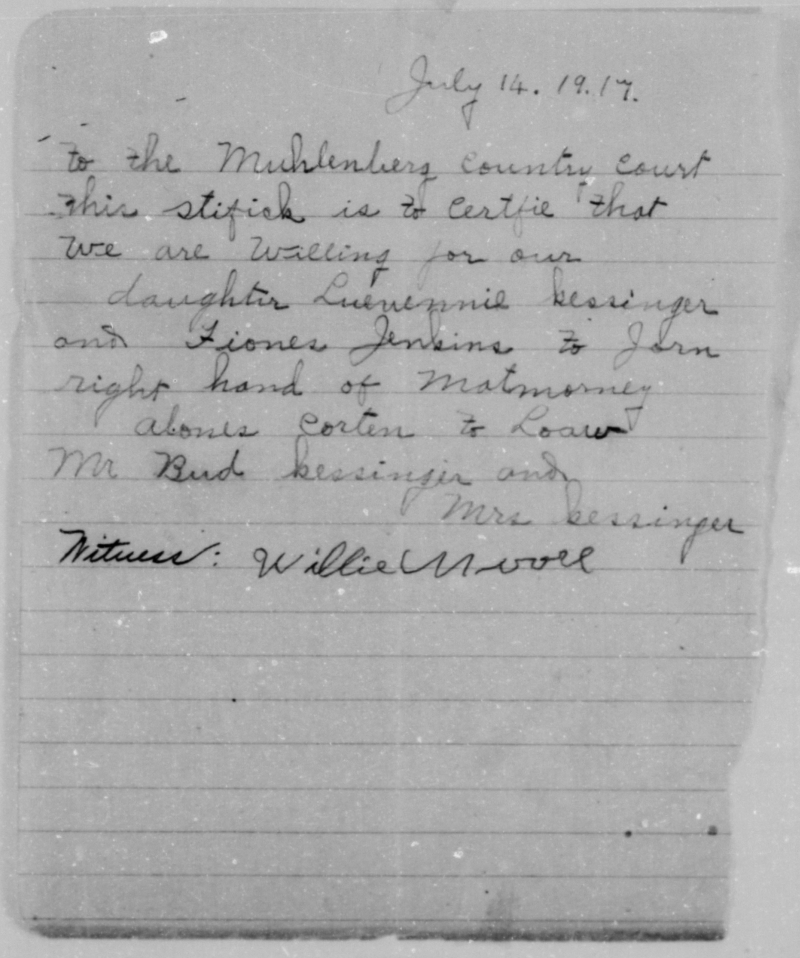 July 14. 19.17.
To the Muhlenberg Country Court
This stifick is to Certfie that
We are Willing for our
daughter Luevennie kessinger
and Fiones Jenkins to Jorn
right hand of Matmorney
abones Corten to Loaw
Mr Bud kessinger and
Mrs kessinger
Witness: Willie Moore